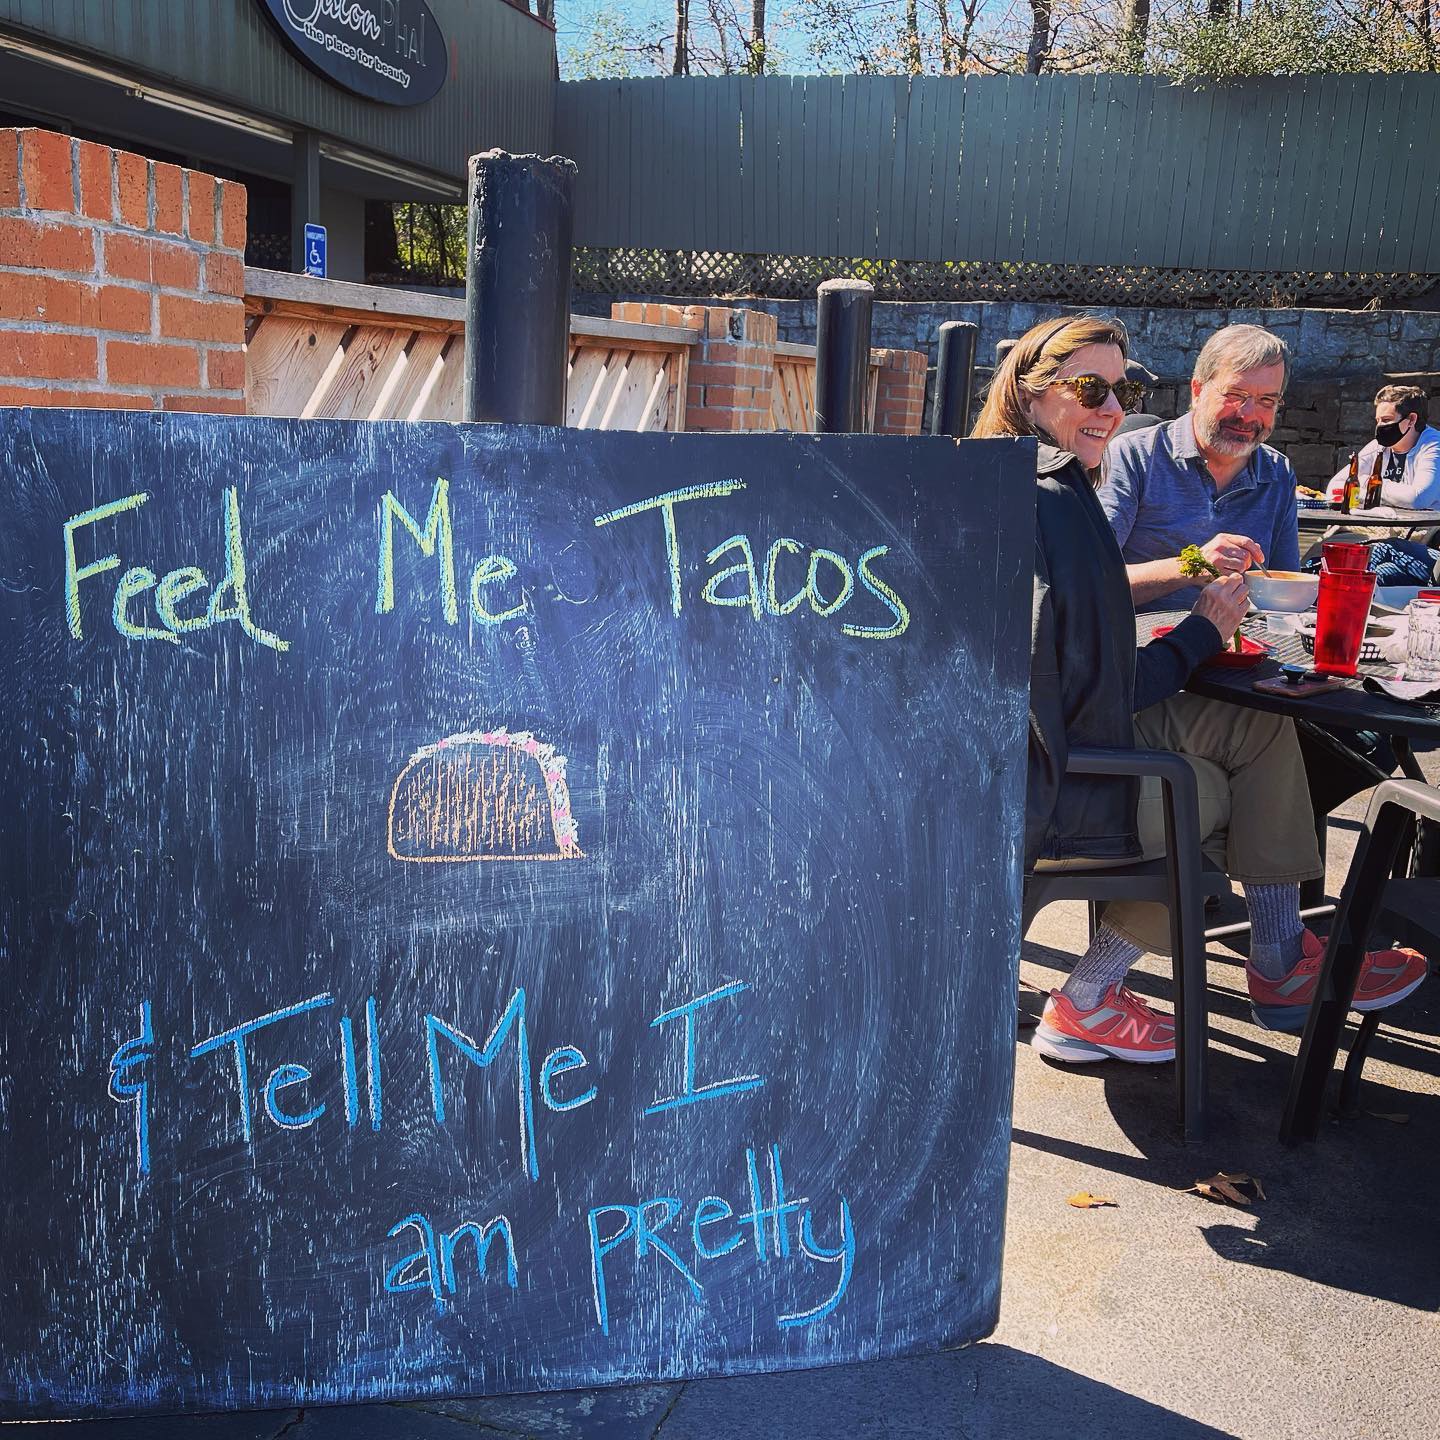 Salon PHAI
the place for beauty
HANDICAPPED
PARKING
Feed Me Tacos
& Tell Me I
am pretty
N